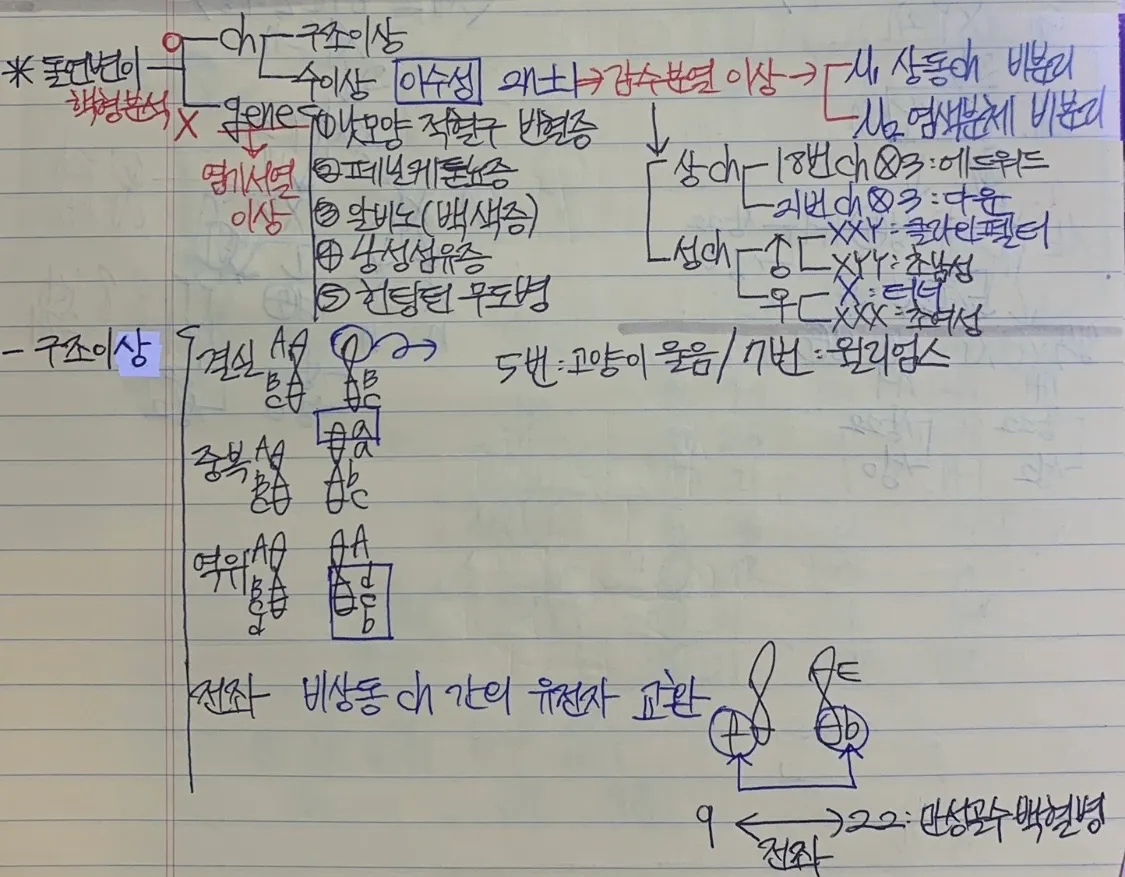 ※ 돌연변이
핵형분석
ch
구조이상
수이상 이수성 2n±1 → 감수분열 이상 →
M₁ 상동ch 비분리
M₂ 염색분체 비분리
X gene
염기서열
이상
① 낫모양 적혈구 빈혈증
② 페닐케톤뇨증
③ 알비노(백색증)
④ 낭성섬유증
⑤ 헌팅턴 무도병
상ch
18번 ch⊗3: 에드워드
21번 ch⊗3: 다운
성ch
♂
XXY: 클라인펠터
XYY: 초남성
우
X: 터너
XXX: 초여성
- 구조이상
결실 A B C B C
5번: 고양이 울음 / 7번: 윌리엄스
중복 A B C a a b c
역위 A B C d A d c b
전좌 비상동 ch 간의 유전자 교환
E b
9 ↔ 22: 만성골수 백혈병
전좌